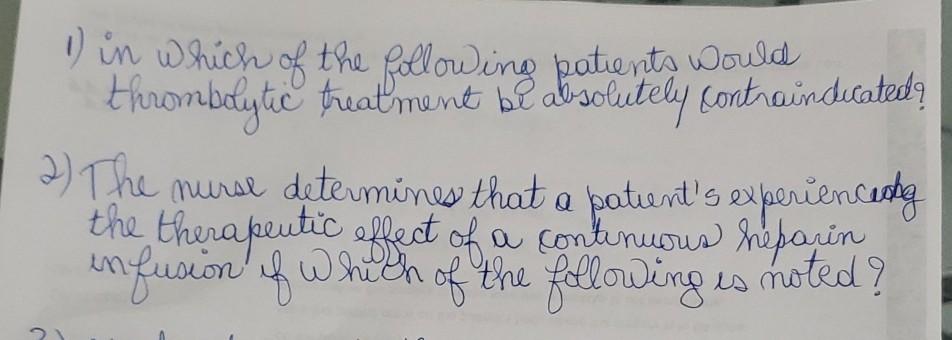 1) in which of the following patients would
thrombolytic treatment be absolutely contraindicated?
2) The nurse determines that a patient's experiencing
the therapeutic effect of a continuous heparin
infusion if which of the following is noted?